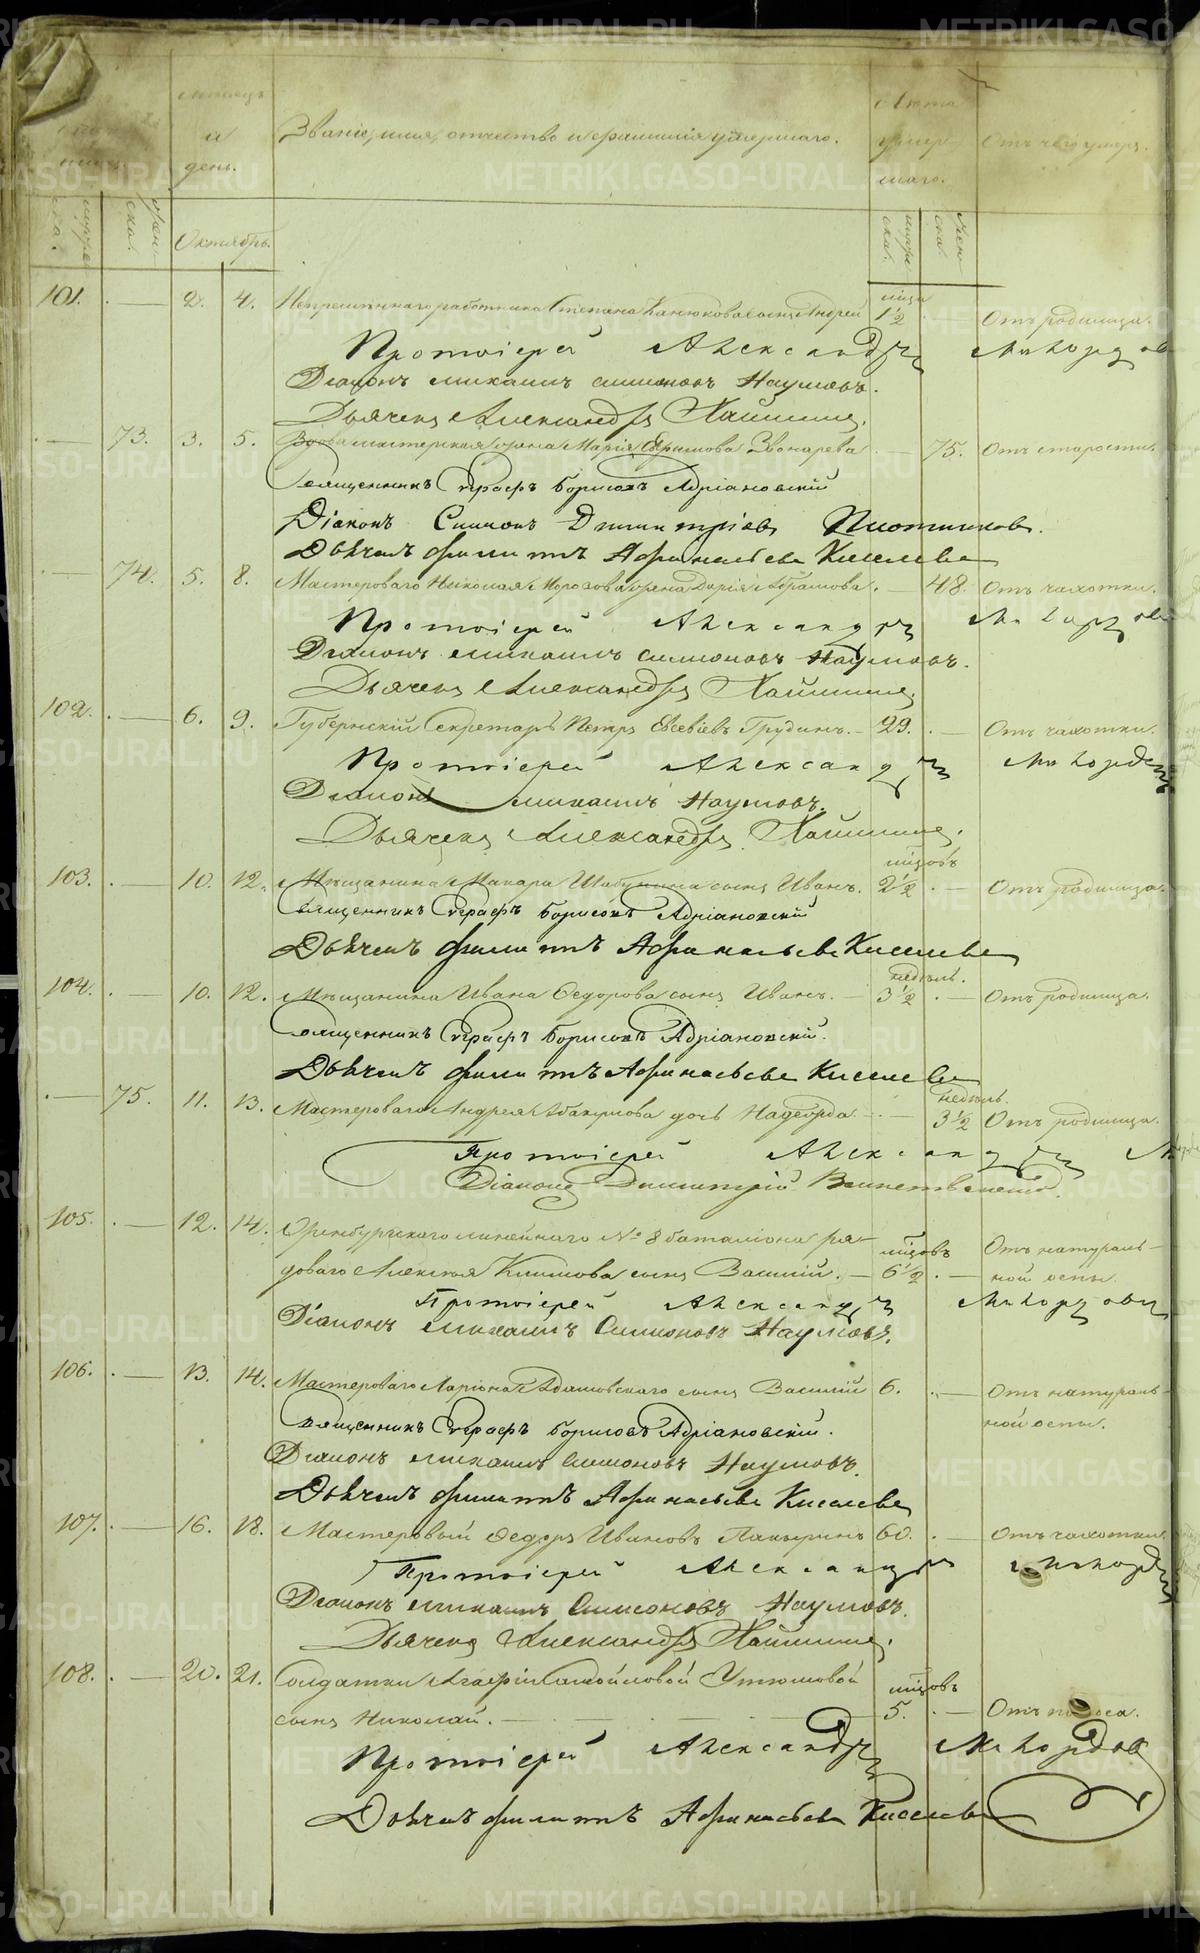 METRIKI.GASO-URAL.RU
мѣсяцъ и день.
Званіе, имя, отчество и фамилія умершаго.
Лѣта умершаго.
Отъ чего умеръ.
Октябрь.
101. — 2. 4. Непремѣннаго работника Степана Канюкова сынъ Андрей мѣца 1½ Отъ родимца.
Протоіерей Александръ
Діаконъ Михаилъ Симоновъ Наумовъ.
Дьячекъ Александръ
— 73. 3. 5. Вдова мастерская жена Марія Ефимова Звонарева — 75. Отъ старости.
Священникъ Евграфъ Борисовъ Адріановскій
Діаконъ Симонъ Димитріевъ Плотниковъ.
Дьячекъ Филиппъ Афанасьевъ Киселевъ
— 74. 5. 8. Мастероваго Николая Морозова жена Дарія Абрамова. — 48. Отъ чахотки.
Протоіерей Александръ
Діаконъ Михаилъ Симоновъ Наумовъ.
Дьячекъ Александръ
102. — 6. 9. Губернскій Секретарь Петръ Евсевіевъ Грудинъ. — 29. — Отъ чахотки.
Протоіерей Александръ
Діаконъ Михаилъ Наумовъ.
Дьячекъ Александръ
103. — 10. 12. Мѣщанина Макара Шабунина сынъ Иванъ. мѣцовъ 2½ — Отъ родимца.
Священникъ Евграфъ Борисовъ Адріановскій
Дьячекъ Филиппъ Афанасьевъ Киселевъ
104. — 10. 12. Мѣщанина Ивана Федорова сынъ Иванъ. — недѣль. 3½ — Отъ родимца.
Священникъ Евграфъ Борисовъ Адріановскій.
Дьячекъ Филиппъ Афанасьевъ Киселевъ
— 75. 11. 13. Мастероваго Андрея Абакумова дочь Надежда. — недѣль. 3½ Отъ родимца.
Протоіерей Александръ
Діаконъ Димитрій
105. — 12. 14. Оренбургскаго линейнаго № 8 баталіона ря-
доваго Алексѣя Климова сынъ Василій. — мѣцовъ 6½ — Отъ натураль-
ной оспы.
Протоіерей Александръ
Діаконъ Михаилъ Симоновъ Наумовъ.
106. — 13. 14. Мастероваго Ларіона Адамовскаго сынъ Василій 6. — Отъ натураль-
ной оспы.
Священникъ Евграфъ Борисовъ Адріановскій.
Діаконъ Михаилъ Симоновъ Наумовъ.
Дьячекъ Филиппъ Афанасьевъ Киселевъ
107. — 16. 18. Мастеровый Федоръ Ивановъ 60. — Отъ чахотки.
Протоіерей Александръ
Діаконъ Михаилъ Симоновъ Наумовъ.
Дьячекъ Александръ
108. — 20. 21. Солдатки Агафіи Самойловой Утюмовой
сынъ Николай. — мѣцовъ 5. — Отъ поноса.
Протоіерей Александръ
Дьячекъ Филиппъ Афанасьевъ Киселевъ